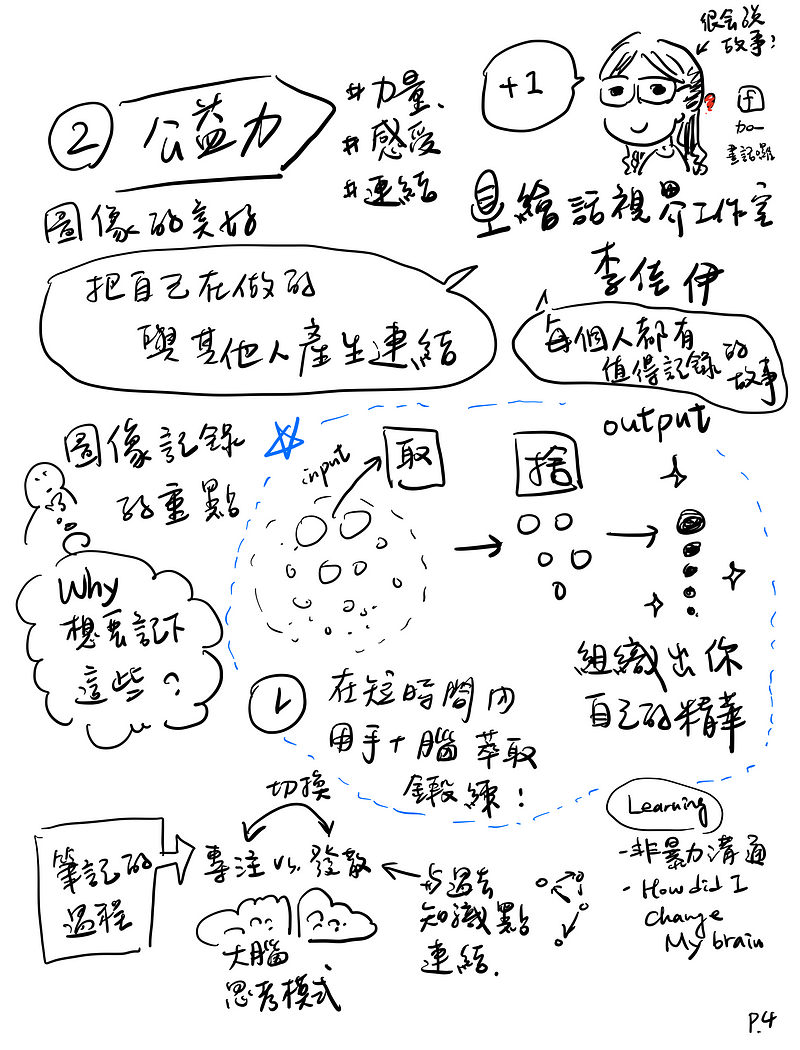 ② 公益力
#力量、
#感受
#連結
+1
很會說
故事!
f
畫記囉
圖像的美好
繪話視界工作室
李佳伊
把自己在做的
與其他人產生連結
每個人都有
值得記錄的
故事
圖像記錄
的重點
Why
想要記下
這些?
input
取
捨
output
組織出你
自己的精華
在短時間內
用手+腦 萃取
鍛練!
切換
筆記的
過程
專注 vs. 發散
大腦
思考模式
與過去
知識點
連結.
Learning
-非暴力溝通
· How did I
Change
My brain
P.4